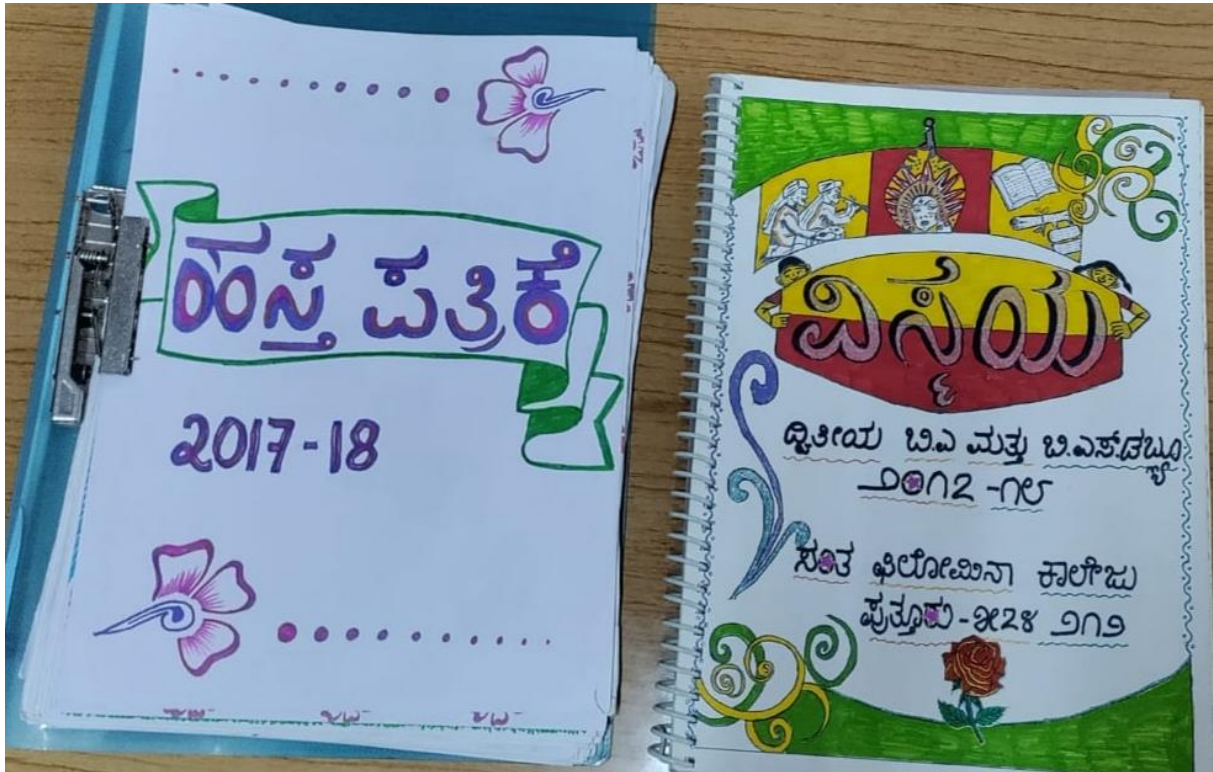 ಹಸ್ತ ಪತ್ರಿಕೆ
2017-18
ವಿಸ್ಮಯ
ದ್ವಿತೀಯ ಬಿ.ಎ ಮತ್ತು ಬಿ.ಎಸ್.ಡಬ್ಲ್ಯೂ
೨೦೧೭-೧೮
ಸಂತ ಫಿಲೋಮಿನಾ ಕಾಲೇಜು
ಪುತ್ತೂರು-೫೭೪ ೨೦೨